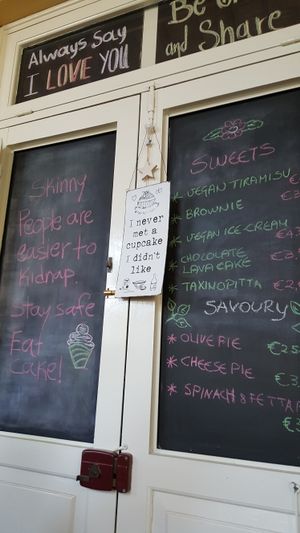 Always Say
I LOVE YOU
Be
and Share
Skinny
People are
easier to
Kidnap.
Stay safe
Eat
Cake!
I never
met a
cupcake
I didn't
like
SWEETS
* VEGAN TIRAMISU
* BROWNIE
* VEGAN ICE CREAM
* CHOCOLATE
LAVA CAKE
* TAXINOPITTA
SAVOURY
* OLIVE PIE €2.5
* CHEESE PIE
* SPINACH & FETTA